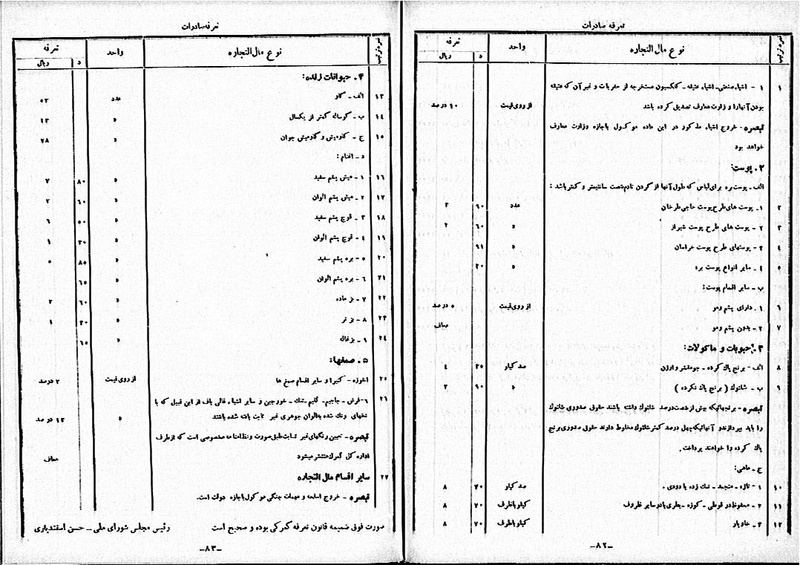 تعرفه صادرات
نمره ترتیب
نوع مال التجاره
واحد
تعرفه
ریال
د
۱
۱ - اشیاء صنعتی، اشیاء عتیقه - کلکسیون مستخرجه از حفریات و غیر آن که عتیقه
بودن آنها را وزارت معارف تصدیق کرده باشد
از روی قیمت
۱۰ درصد
تبصره - خروج اشیاء مذکور در این ماده موکول باجازه وزارت معارف
خواهد بود
۲. پوست:
الف - پوست بره برای لباس که طول آنها از گردن تا دم شصت سانتیمتر و کمتر باشد :
۲
۱ـ پوست های طرح پوست حاجی طرخان
عدد
۶۰
۳
۳
۲ - پوست های طرح پوست شیراز
۶۰
۲
۴
۳ - پوستهای طرح پوست خراسان
۹۱
۵
۴ - سایر انواع پوست بره
۳۰
ب - سایر اقسام پوست:
۶
۱ - دارای پشم و مو
از روی قیمت
۵ درصد
۷
۲ - بدون پشم و مو
معاف
۳. حبوبات و ماکولات:
۸
الف - برنج پاک کرده - جو مقشر و ارزن
صد کیلو
۳۵
۴
۹
ب - شلتوک (برنج پاک نکرده)
۹۰
۲
تبصره - برنجهائیکه بیش از شصت درصد شلتوک داشته باشند حقوق صدوری شلتوک
را باید بپردازند و آنهائیکه چهل درصد کمتر شلتوک مخلوط دارند حقوق صدوری برنج
پاک کرده را خواهند پرداخت.
ج - ماهی:
۱۰
۱ - تازه - منجمد - نمک زده یا دودی.
صد کیلو
۴۰
۸
۱۱
۲ - محفوظ در قوطی - کوزه - بطری یا در سایر ظروف
کیلو باظرف
۷۰
۸
۱۲
۳ - خاویار
کیلو باظرف
۷۰
۸
-۸۲-
تعرفه صادرات
نمره ترتیب
نوع مال التجاره
واحد
تعرفه
د
ریال
۴. حیوانات زنده:
۱۳
الف - گاو
عدد
۵۲
۱۴
ب - گوساله کمتر از یکسال
۱۳
۱۵
ج - گاومیش و گاومیش جوان
۷۸
د - اغنام:
۱۶
۱ - میش پشم سفید
۸۰
۷
۱۷
۲ - میش پشم الوان
۶۰
۲
۱۸
۳ - قوچ پشم سفید
۵۰
۶
۱۹
۴ - قوچ پشم الوان
۳۰
۱
۲۰
۵ - بره پشم سفید
۸۵
۵
۲۱
۶ - بره پشم الوان
۶۵
۲۲
۷ - بز ماده
۶۰
۲
۲۳
۸ - بز نر
۳۰
۱
۲۴
۹ - بزغاله
۶۵
۵. صمغها:
۲۵
انغوزه - کتیرا و سایر اقسام صمغ ها
از روی قیمت
۲ درصد
۲۶
۶- فرش - جاجیم - گلیم - تشک - خورجین و سایر اشیاء قالی باف از این قبیل که با
نخهای رنگ شده با الوان جوهری غیر ثابت بافته شده باشند
۱۲ درصد
تبصره - تعیین رنگهای غیر ثابت طبق صورت و نظامنامه مخصوصی است که از طرف
اداره کل گمرک منتشر میشود
معاف
۲۷
سایر اقسام مال التجاره
تبصره - خروج اسلحه و مهمات جنگی موکول باجازه دولت است.
صورت فوق ضمیمه قانون تعرفه گمرکی بوده و صحیح است
رئیس مجلس شورای ملی - حسن اسفندیاری
-۸۳-